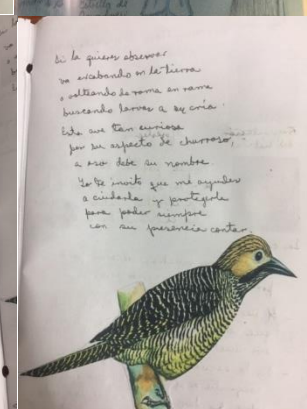 Si la quieres observar
va escabando en la tierra
o volteando de rama en rama
buscando larvas a su cría.
Esta ave tan curiosa
por su aspecto de churroso,
a eso debe su nombre.
Yo te invito que me ayudes
a ciudarla y protegerla
para poder siempre
con su presencia contar.